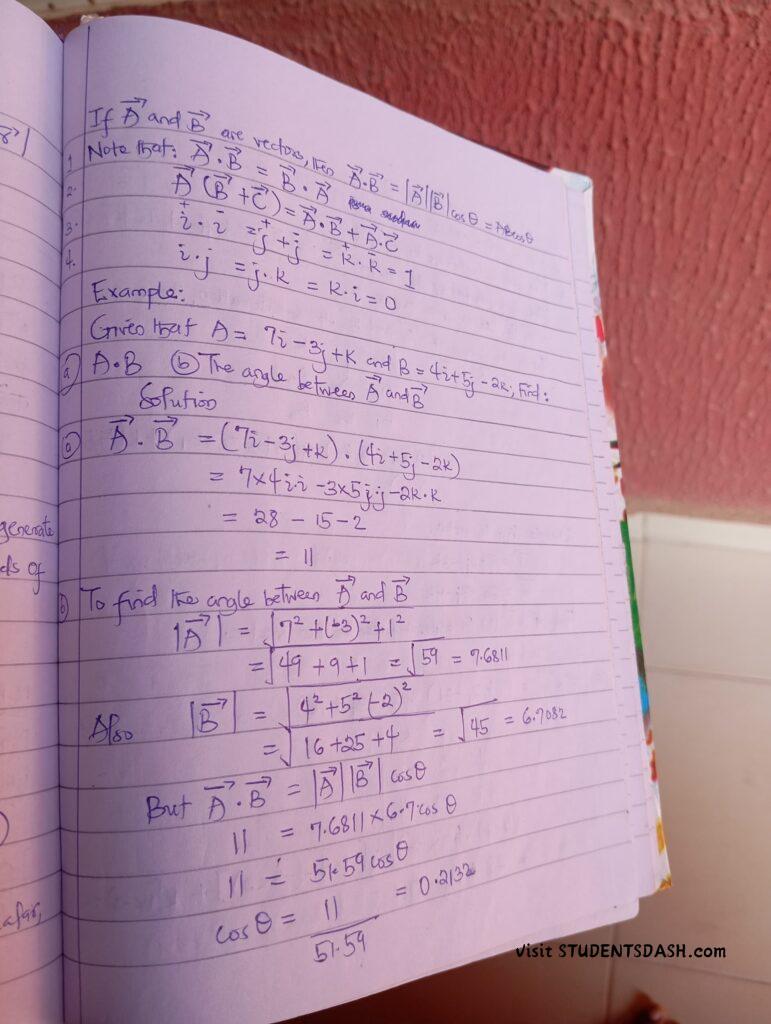 If A⃗ and B⃗ are vectors, then A⃗·B⃗ = |A⃗||B⃗|cosθ = ABcosθ
1 Note that: A⃗·B⃗ = B⃗·A⃗
2. A⃗(B⃗+C⃗) = A⃗·B⃗+A⃗·C⃗
3. i·i = j+j = k·k = 1
4. i·j = j·k = k·i = 0
Example:
Given that A = 7i-3j+k and B = 4i+5j-2k; Find:
a) A·B (b) The angle between A⃗ and B⃗
Solution
a) A⃗·B⃗ = (7i-3j+k)·(4i+5j-2k)
= 7x4i·i-3x5j·j-2k·k
= 28-15-2
= 11
generate
ds of
b) To find the angle between A⃗ and B⃗
|A⃗| = √7²+(-3)²+1²
= √49+9+1 = √59 = 7.6811
Also |B⃗| = √4²+5²(-2)²
= √16+25+4 = √45 = 6.7082
But A⃗·B⃗ = |A⃗||B⃗|cosθ
11 = 7.6811x6.7cosθ
11 = 51.59cosθ
afar,
cosθ = 11/51.59 = 0.2132
Visit STUDENTSDASH.com